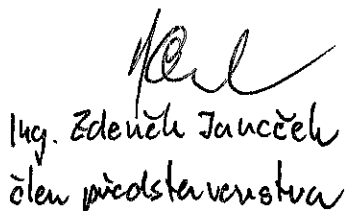 Ing. Zdeněk Janeček
člen představenstva